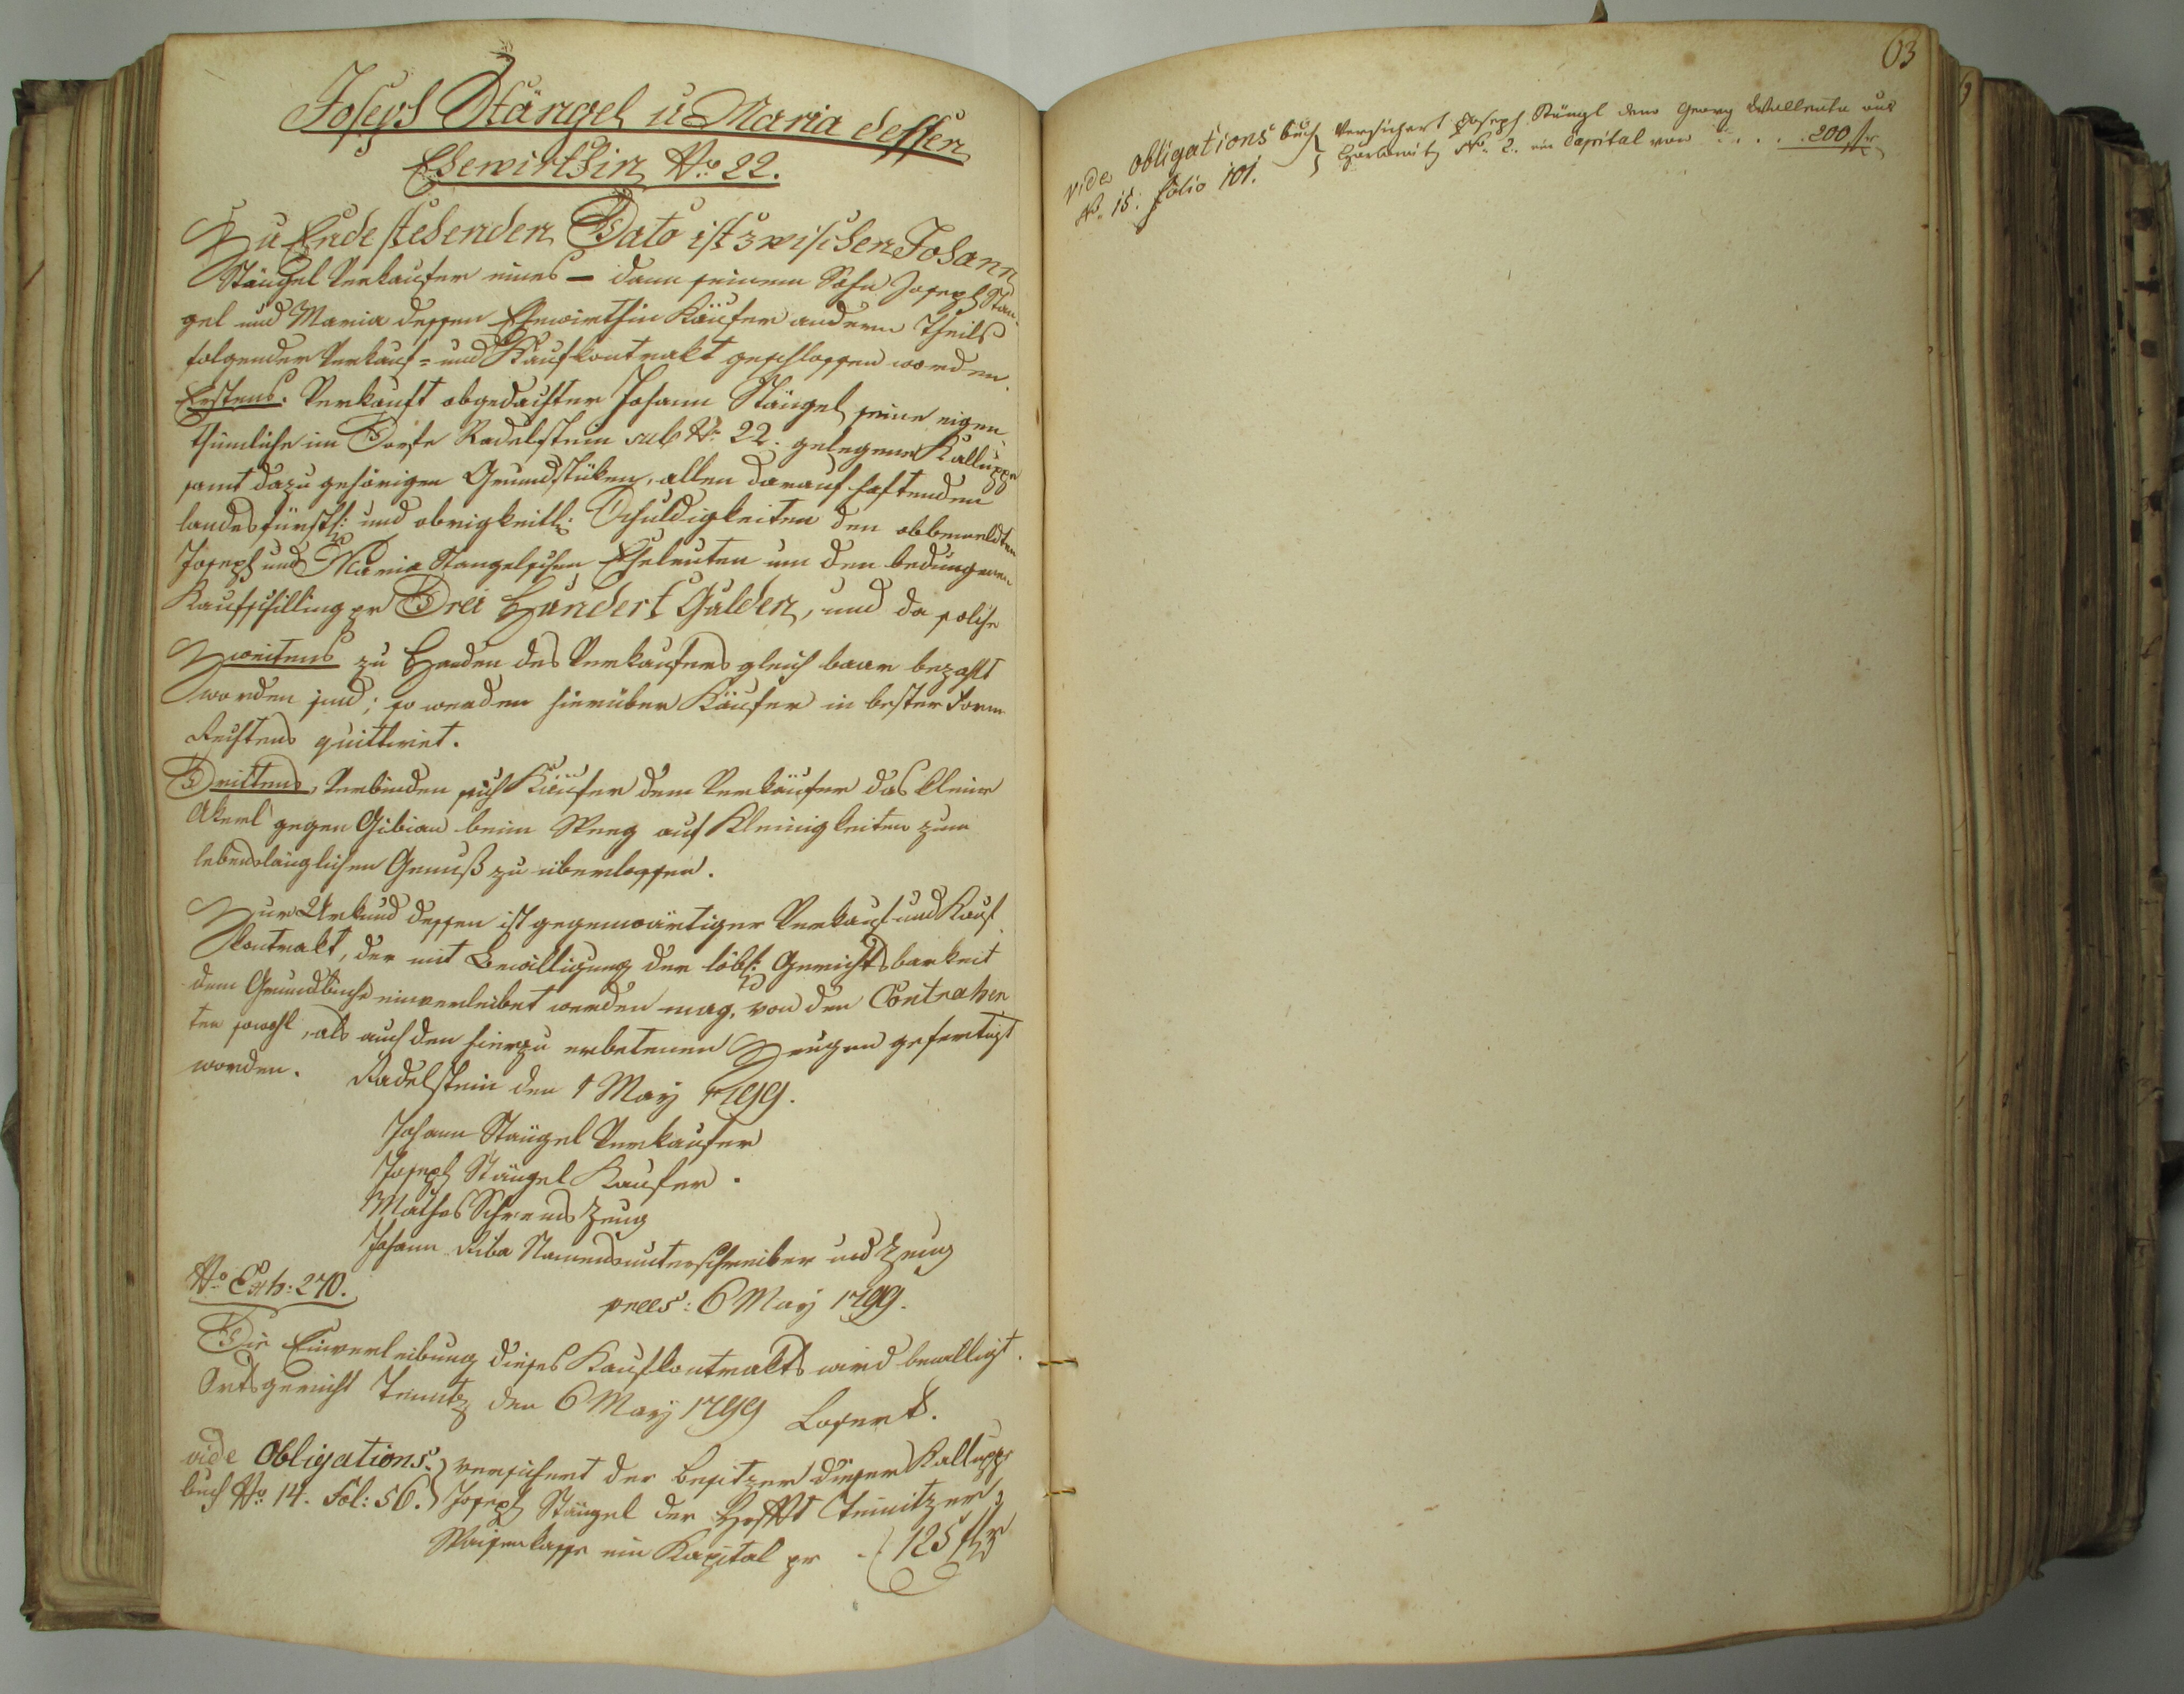 Joseph Stängel u Maria dessen
Ehewirthin No. 22.
Zu Ende stehenden Dato ist zwischen Johann
Stängel Verkaufer eines – dann seinem Sohn Joseph Stän-
gel und Maria dessen Ehewirthin Käufer andern Theils
folgender Verkauf- und Kaufkontrakt geschlossen worden.
Erstens. Verkauft obgedachter Johann Stängel seine eigen-
thümliche im Dorfe Radelstein sub No. 22. gelegene Kaluppe
samt dazu gehörigen Grundstüken, allen darauf haftenden
landesfürstl: und obrigkeitl: Schuldigkeiten den obbemeldten
Joseph und Maria Stangelschen Eheleuten um den bedungenen
Kaufschilling pr Drei Hundert Gulden, und da solche
Zweitens zu Handen des Verkaufers gleich baar bezahlt
worden sind; so werden hierüber Käufer in bester Form
Rechtens quittiret.
Drittens, Verbinden sich Käufer dem Verkäufer das kleine
Akerl gegen Gibian beim Weeg auf Kleinigkeiten zum
lebenslänglichen Genuß zu überlassen.
Zur Urkund dessen ist gegenwärtiger Verkauf und Kauf
Kontrakt, der mit Bewilligung der löbl: Gerichtsbarkeit
dem Grundbuche einverleibet werden mag, von den Contrahen
ten sowohl, als auch den hierzu erbetenen Zeugen gefertigt
worden. Radelstein den 1 May 1799.
Johann Stängel Verkaufer
Joseph Stängel Kaufer.
Mathes Zeug
Johann Riba Namensunterschreiber und Zeug
No. Exh: 270.
prees: 6 May 1799.
Die Einverleibung dieses Kaufkontrakts wird bewilligt.
Ortsgericht den 6 May 1799
vide Obligations- versichert der Besitzer dieser Kaluppe
buch No. 14. Fol: 56. Joseph Stängel der
Waisenkasse ein Kapital pr 125 f
63
vide Obligations buch versichert Joseph Stängl dem Georg aus
No. 15. folio 101. No. 2. ein Capital von . . . . 200 f